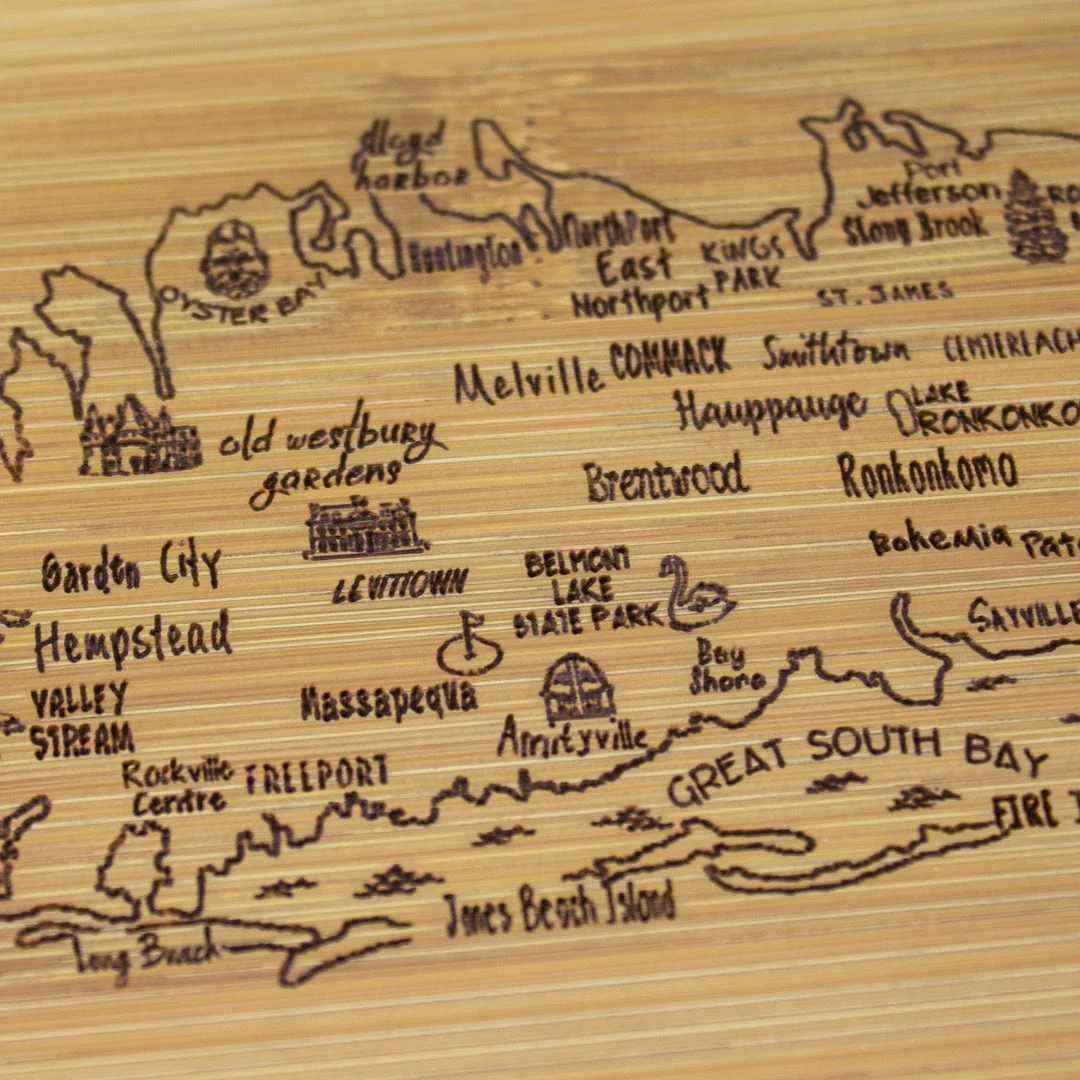 lloyd
harbor
Port
Jefferson
Stony Brook
RO
Huntington
NorthPort
East
Northport
KiNGS
PARK
OYSTER BAY
ST. JAMES
Melville
COMMACK
Smithtown
CENTEREACH
Hauppauge
LAKE
RONKONKO
old westbury
gardens
Brentwood
Ronkonkomo
Garden City
LEVITTOWN
BELMONT
LAKE
STATE PARK
Bohemia
Patc
Hempstead
SAYVILLE
Bay
Shore
VALLEY
STREAM
Massapequa
Amityville
GREAT SOUTH BAY
Rockville
Centre
FREEPORT
FIRE I
Jones Beach Island
Long Beach